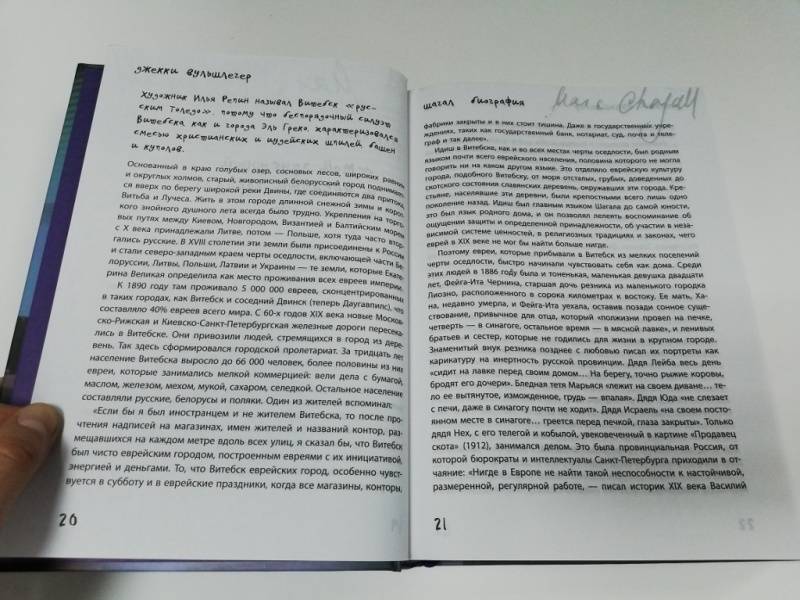 джекки вульшлегер
Художник Илья Репин называл Витебск «рус-
ским Толедо», потому что беспорядочный силуэт
Витебска, как и города Эль Греко, характеризовался
смесью христианских и иудейских шпилей, башен
и куполов.
Основанный в краю голубых озер, сосновых лесов, широких равнин
и округлых холмов, старый, живописный белорусский город поднимал-
ся вверх по берегу широкой реки Двины, где соединяются два притока,
Витьба и Лучеса. Жить в этом городе длинной снежной зимы и корот-
кого знойного душного лета всегда было трудно. Укрепления на торго-
вых путях между Киевом, Новгородом, Византией и Балтийским морем
с X века принадлежали Литве, потом — Польше, хотя туда часто втор-
гались русские. В XVIII столетии эти земли были присоединены к России
и стали северо-западным краем черты оседлости, включающей части Бе-
лоруссии, Литвы, Польши, Латвии и Украины — те земли, которые Екате-
рина Великая определила как место проживания всех евреев империи.
К 1890 году там проживало 5 000 000 евреев, сконцентрированных
в таких городах, как Витебск и соседний Двинск (теперь Даугавпилс), что
составляло 40% евреев всего мира. С 60-х годов XIX века новые Москов-
ско-Рижская и Киевско-Санкт-Петербургская железные дороги пересека-
лись в Витебске. Они привозили людей, стремящихся в город из дере-
вень. Так здесь сформировался городской пролетариат. За тридцать лет
население Витебска выросло до 66 000 человек, более половины из них
евреи, которые занимались мелкой коммерцией: вели дела с бумагой,
маслом, железом, мехом, мукой, сахаром, селедкой. Остальное население
составляли русские, белорусы и поляки. Один из жителей вспоминал:
«Если бы я был иностранцем и не жителем Витебска, то после про-
чтения надписей на магазинах, имен жителей и названий контор, раз-
мещавшихся на каждом метре вдоль всех улиц, я сказал бы, что Витебск
был чисто еврейским городом, построенным евреями с их инициативой,
энергией и деньгами. То, что Витебск еврейских город, особенно чувст-
вуется в субботу и в еврейские праздники, когда все магазины, конторы,
20
шагал биография
Marc Chagall
фабрики закрыты и в них стоит тишина. Даже в государственных учреж-
дениях, таких как государственный банк, нотариат, суд, почта и теле-
граф и так далее».
Идиш в Витебске, как и во всех местах черты оседлости, был родным
языком почти всего еврейского населения, половина которого не могла
говорить ни на каком другом языке. Это отделяло еврейскую культуру
города, подобного Витебску, от моря отсталых, грубых, доведенных до
скотского состояния славянских деревень, окружавших эти города. Кре-
стьяне, населявшие эти деревни, были крепостными всего лишь одно
поколение назад. Идиш был главным языком Шагала до самой юности,
это был язык родного дома, и он позволял лелеять воспоминание об
ощущении защиты и определенной принадлежности, об участии в неза-
висимой системе ценностей, в религиозных традициях и законах, чего
евреи в XIX веке не мог бы найти больше нигде.
Поэтому евреи, которые прибывали в Витебск из мелких поселений
черты оседлости, быстро начинали чувствовать себя как дома. Среди
этих людей в 1886 году была и тоненькая, маленькая девушка двадцати
лет, Фейга-Ита Чернина, старшая дочь резника из маленького городка
Лиозно, расположенного в сорока километрах к востоку. Ее мать, Ха-
на, недавно умерла, и Фейга-Ита уехала, оставив позади сонное суще-
ствование, привычное для отца, который «полжизни провел на печке,
четверть — в синагоге, остальное время — в мясной лавке», и ленивых
братьев и сестер, которые не годились для жизни в крупном городе.
Знаменитый внук резника позднее с любовью писал их портреты как
карикатуру на инертность русской провинции. Дядя Лейба весь день
«сидит на лавке перед своим домом… На берегу, точно рыжие коровы,
бродят его дочери». Бледная тетя Марьяся «лежит на своем диване… те-
ло ее вытянутое, изможденное, грудь — впалая». Дядя Юда «не слезает
с печи, даже в синагогу почти не ходит». Дядя Исраель «на своем посто-
янном месте в синагоге… греется перед печкой, глаза закрыты». Только
дядя Нех, с его телегой и кобылой, увековеченный в картине «Продавец
скота» (1912), занимался делом. Это была провинциальная Россия, от
которой бюрократы и интеллектуалы Санкт-Петербурга приходили в от-
чаяние: «Нигде в Европе не найти такой неспособности к настойчивой,
размеренной, регулярной работе, — писал историк XIX века Василий
21